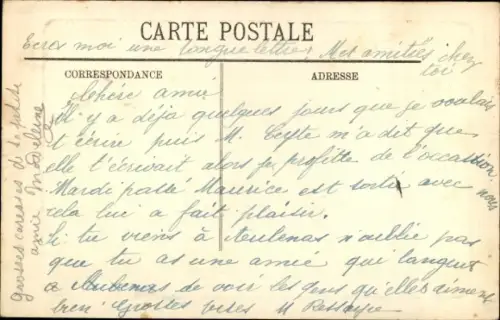 CARTE POSTALE
Ecris moi une longue lettre, Mes amitiés chez
toi
CORRESPONDANCE
ADRESSE
Chère amie
Il y a déja quelques jours que je voulais
t écrire puis M. m'a dit que
elle t'écrivait alors je profite de l'occassion
Mardi passé Maurice est sortie avec nous
cela lui a fait plaisir.
Si tu viens à Aubenas n'oublie pas
que tu as une amie qui languit
a Aubenas de voir les gens qu'elles aiment
bien Grosses bises M
grosses caresses de ta petite
amie Madeleine